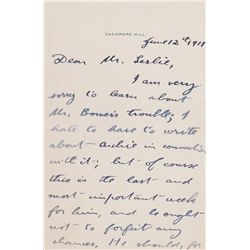 SAGAMORE HILL.
June 12th 1911
Dear Mr. Leslie,
I am very
sorry to learn about
Mr. Bowers trouble; I
hate to have to write
about Archie in connection
with it; but of course
this is the last and
most important week
for him, and he ought
not to forfeit any
chances. He should, for